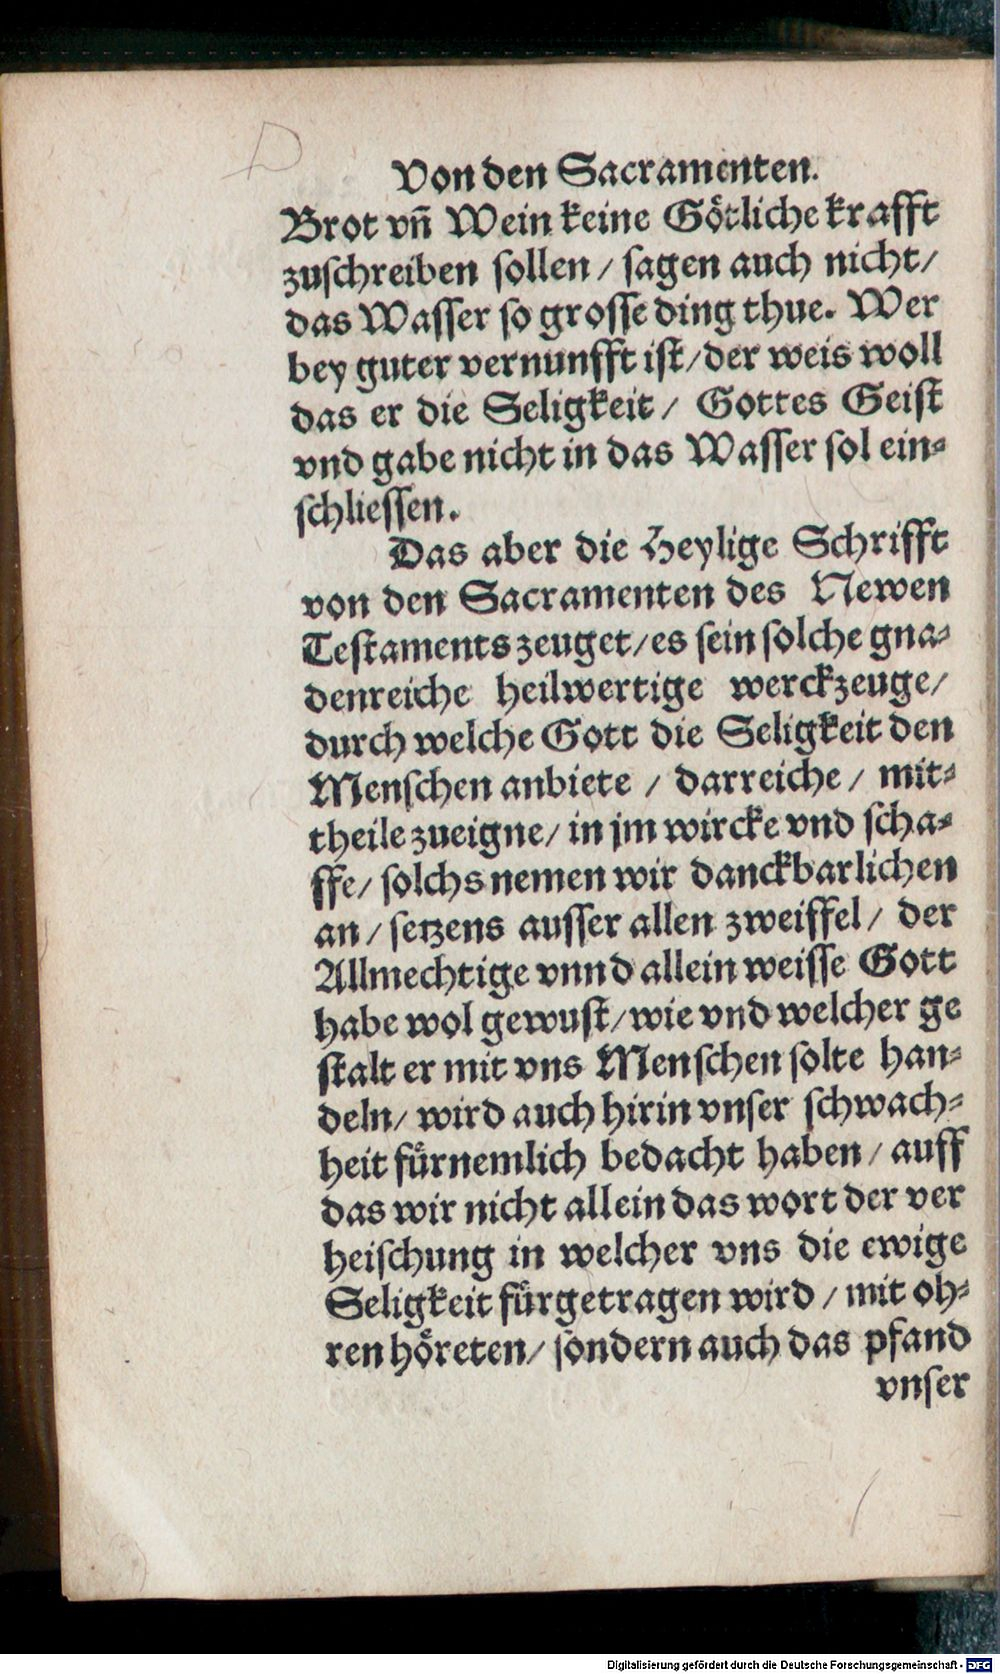 Von den Sacramenten.
Brot vñ Wein keine Götliche krafft
zuschreiben sollen / sagen auch nicht /
das Wasser so grosse ding thue. Wer
bey guter vernunfft ist / der weis woll
das er die Seligkeit / Gottes Geist
vnd gabe nicht in das Wasser sol ein-
schliessen.
Das aber die Heylige Schrifft
von den Sacramenten des Newen
Testaments zeuget / es sein solche gna-
denreiche heilwertige werckzeuge /
durch welche Gott die Seligkeit den
Menschen anbiete / darreiche / mit-
theile zueigne / in jm wircke vnd scha-
ffe / solchs nemen wir danckbarlichen
an / setzens ausser allen zweiffel / der
Allmechtige vnnd allein weisse Gott
habe wol gewust / wie vnd welcher ge
stalt er mit vns Menschen solte han-
deln / wird auch hirin vnser schwach-
heit fürnemlich bedacht haben / auff
das wir nicht allein das wort der ver
heischung in welcher vns die ewige
Seligkeit fürgetragen wird / mit oh-
ren höreten / sondern auch das pfand
vnser
Digitalisierung gefördert durch die Deutsche Forschungsgemeinschaft - DFG